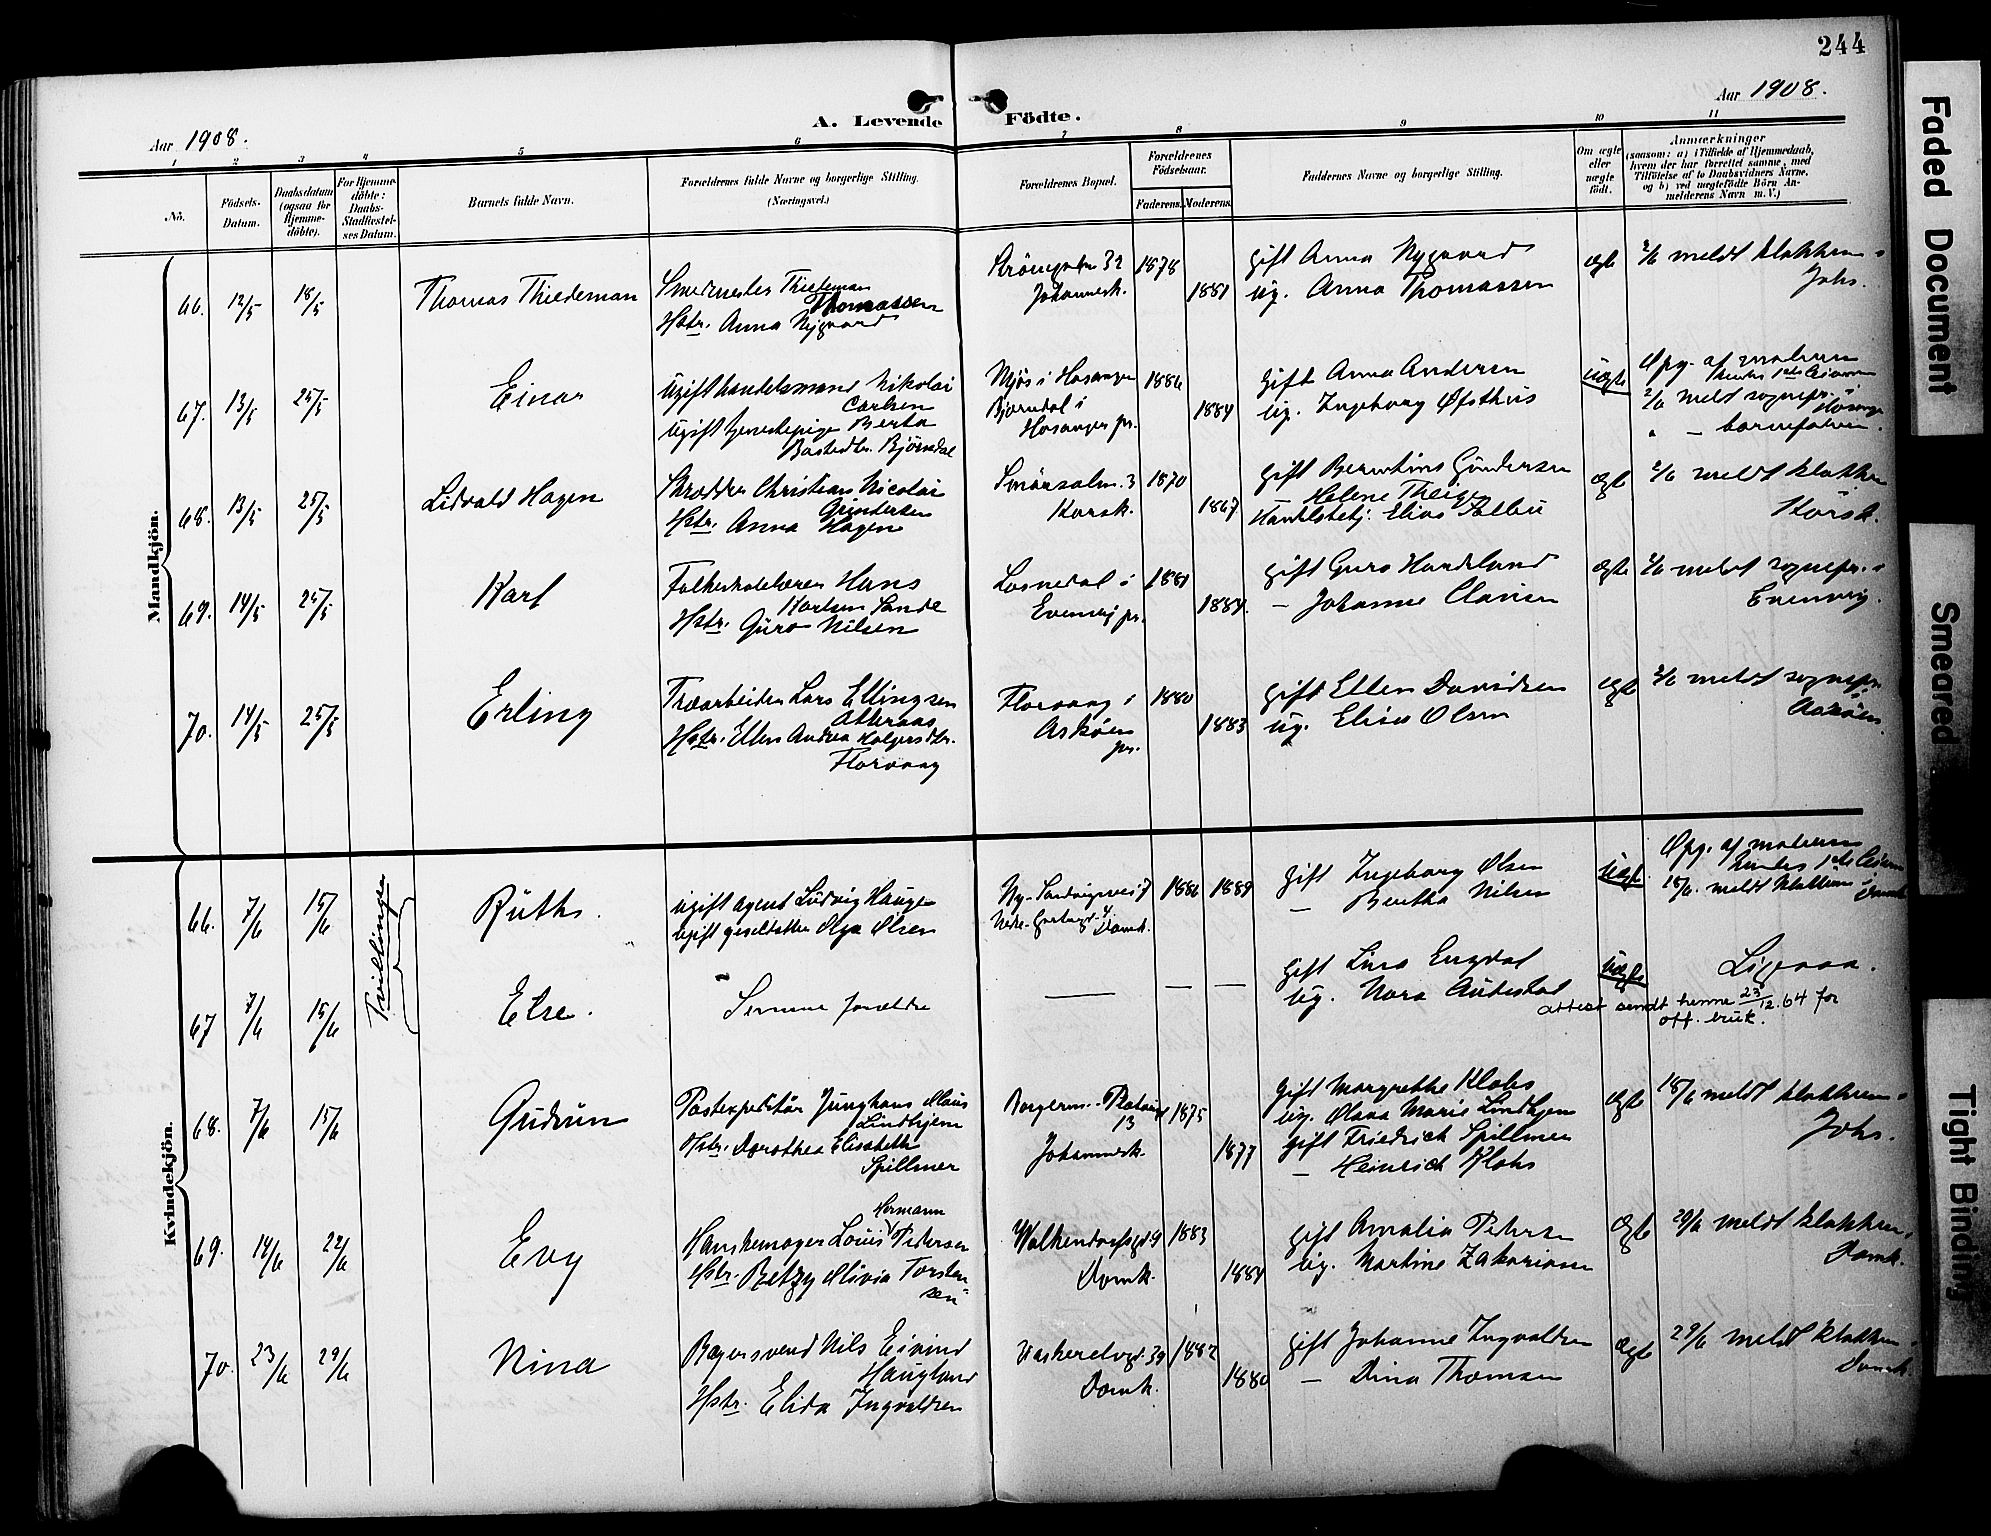 244
Aar 1908.
Aar 1908.
A. Levende Födte.
1 2 3 4 5 6 7 8 9 10 11
No.
Födsels-Datum.
Daabsdatum (ogsaa for Hjemme-döbte).
For Hjemme-döbte: Daabs-Stadfæstel-ses Datum.
Barnets fulde Navn.
Forældrenes fulde Navne og borgerlige Stilling.
(Næringsvei.)
Forældrenes Bopæl.
Forældrenes Födselsaar.
Faderens. Moderens.
Faddernes Navne og borgerlige Stilling.
Om ægte eller uægte födt.
Anmærkninger
(saasom: a) i Tilfælde af Hjemmedaab, hvem der har forrettet samme, med Tilföielse af to Daabsvidners Navne, og b) ved uægtefödte Börn An-melderens Navn m. V.)
Mandkjön.
66. 12/5 18/5 Thomas Thiedeman
Smedmester Thiedeman
Thomassen
Hstr. Anna Nygaard
32
Johannesk.
1878 1881
gift Anna Nygaard
ug. Anna Thomassen
ægte
2/6 meldt klokkeren i
Johs.
67. 13/5 25/5 Einar
Ugift handelsmand Nikolai
Carlsen
Ugift tjenestepige Berta
Bastedtr. Bjørndal
Mjøs i Hosanger
Bjørndal i
Hosanger pr.
1886 1884
gift Anna Andersen
ug. Ingeborg Øfsthus
uægte
Opg. af moderen
hendes 1ste
2/6 meldt sognepr. i
Hosanger
" – barnefaderen.
68. 13/5 25/5 Lidvald Hagen
Skrædder Christian Nicolai
Gundersen
Hstr. Anna Hagen
Smørsalm. 3
Korsk.
1870 1867
gift Berntine Gundersen
Helene Theige
Elias
ægte
2/6 meldt klokkeren
Korsk.
69. 14/5 25/5 Karl
Folkeskolelærer Hans
Karlsen Sande
Hstr. Guro Nilsen
Losnedal i
Evenvig pr.
1881 1884.
gift Guro Handeland
– Johanne Clausen
ægte
2/6 meldt sognepr. i
Evenvig.
70. 14/5 25/5 Erling
Træarbeider Lars Ellingsen
Otteraas
Hstr. Ellen Andrea Holgersdtr.
Florvaag
Florvaag i
Askøen
pr.
1880 1883
gift Ellen Davidsen
ug. Elise Olsen
ægte
2/6 meldt sognepr.
Askøen.
Kvindekjön.
Tvillinger
66. 7/6 15/6 Ruth.
ugift agent Ludvig Hauge
ugift Olga Olsen
Ny-Sandvigsvei 7
Domk.
1886 1889
gift Ingeborg Olsen
– Bertha Nilsen
uægte
Opg. af moderen
hendes 1ste
18/6. meldt klokkeren i
Domk.
67 7/6 15/6 Else.
Samme forældre
— — —
gift Lina Engdal
ug. Nora Audestad
uægte
Ligesaa.
attest sendt henne 23/12.64 for
off. bruk.
68. 7/6 15/6 Gudrun
Postexpeditør Junghans Maus
Lindhjem
Hstr. Dorothea Elisabeth
Spillmer
13
Johannesk.
1875 1877
gift Margrethe Klohs
ug. Olava Marie Lindhjem
gift Friedrich Spillmer
– Heinrich Klohs
ægte
18/6 meldt klokkeren i
Johs.
69. 14/6 22/6 Evy
Hermann
Hanskemager Louis Pedersen
Hstr. Betzy Olivia Torsten
sen
Walkendorfsgd. 9
Domk.
1883 1884
gift Amalia Petersen
ug. Martine Zakariasen
ægte
29/6 meldt klokkeren,
Domk.
70. 23/6 29/6 Nina
Bagersvend Nils Eivind
Haugland
Hstr. Elida Ingvaldsen
Vaskerelvgd. 39
Domk.
1882 1880
gift Johanne Ingvaldsen
– Dina Thomsen
ægte
29/6 meldt klokkeren
Domk.
Faded Document
Smeared
Tight Binding